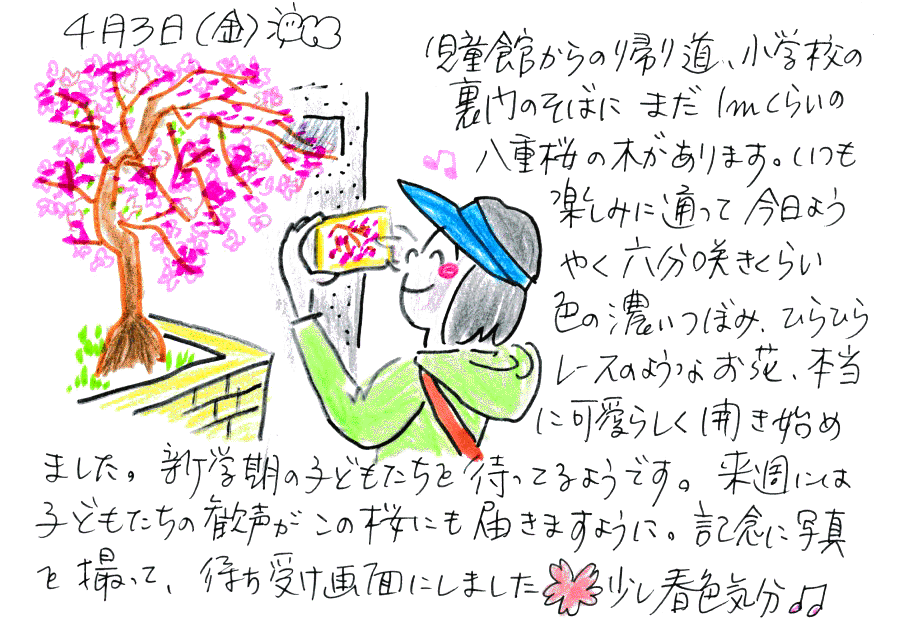 4月3日(金)
児童館からの帰り道、小学校の
裏門のそばに まだ1mくらいの
八重桜の木があります。いつも
楽しみに通って今日よう
やく六分咲きくらい
色の濃いつぼみ、ひらひら
レースのようなお花、本当
に可愛らしく開き始め
ました。新学期の子どもたちを待ってるようです。来週には
子どもたちの歓声がこの桜にも届きますように。記念に写真
を撮って、待ち受け画面にしました 少し春色気分♫